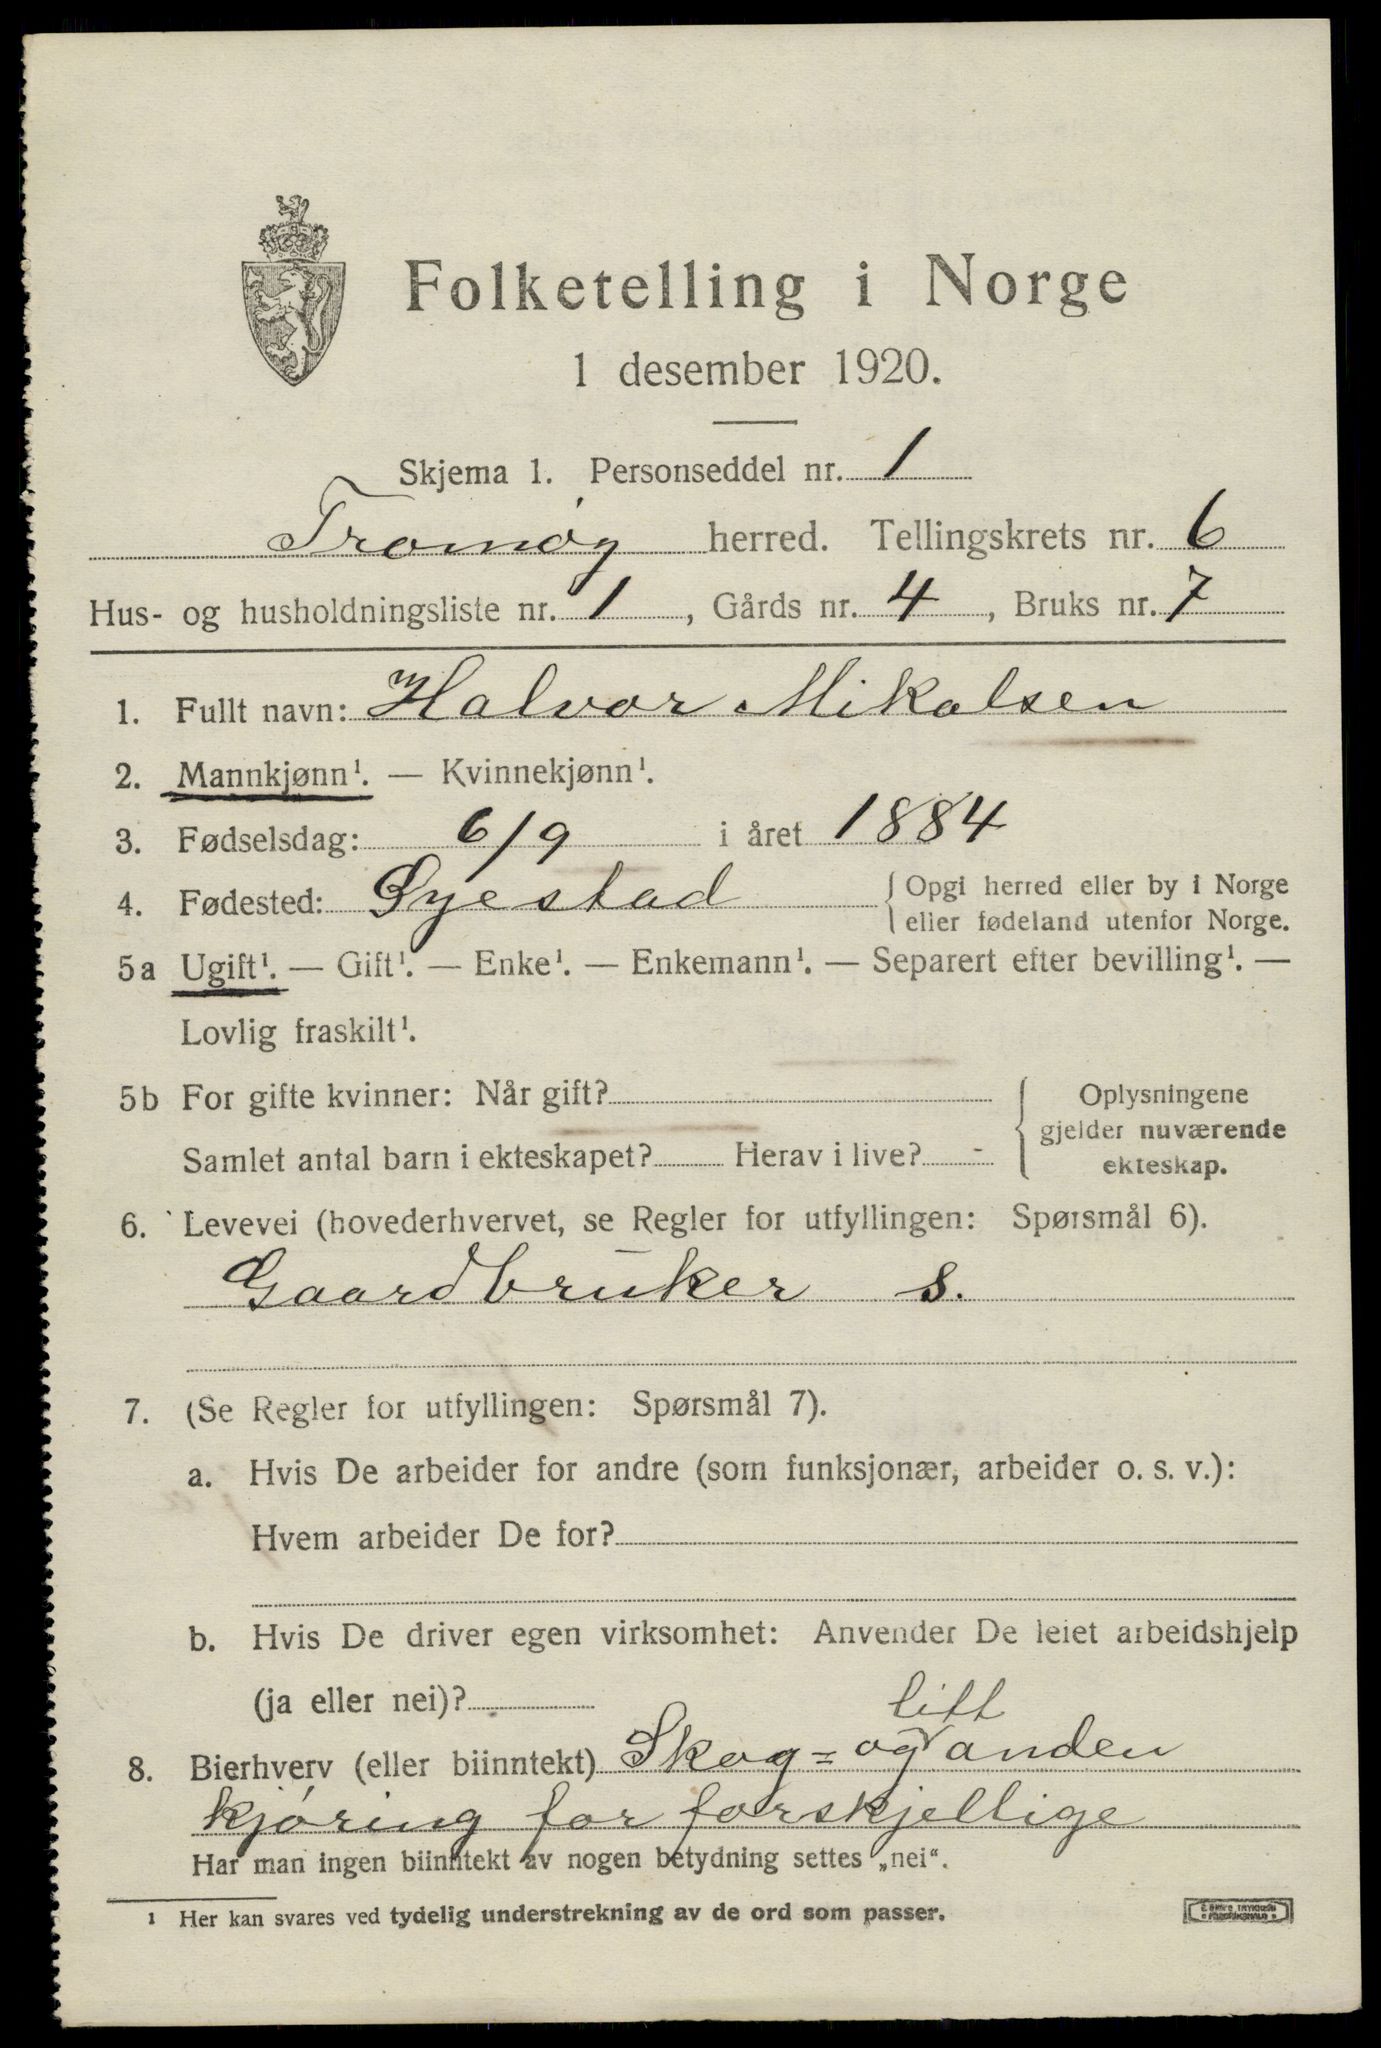 Folketelling i Norge
1 desember 1920.
Skjema 1. Personseddel nr. 1
Tromøy herred. Tellingskrets nr. 6
Hus- og husholdningsliste nr. 1, Gårds nr. 4, Bruks nr. 7
1. Fullt navn: Halvor Mikalsen
2. Mannkjønn¹. — Kvinnekjønn¹.
3. Fødselsdag: 6/9 i året 1884
4. Fødested: Øyestad { Opgi herred eller by i Norge
eller fødeland utenfor Norge.
5a Ugift¹. — Gift¹. — Enke¹. — Enkemann¹. — Separert efter bevilling¹. —
Lovlig fraskilt¹.
5b For gifte kvinner: Når gift? { Oplysningene
gjelder nuværende
Samlet antal barn i ekteskapet? Herav i live? -
ekteskap.
6. Levevei (hovederhvervet, se Regler for utfyllingen: Spørsmål 6).
Gaardbruker s.
7. (Se Regler for utfyllingen: Spørsmål 7).
a. Hvis De arbeider for andre (som funksjonær, arbeider o. s. v.):
Hvem arbeider De for?
b. Hvis De driver egen virksomhet: Anvender De leiet arbeidshjelp
(ja eller nei)?
litt
8. Bierhverv (eller biinntekt) Skog= og anden
kjøring for forskjellige
Har man ingen biinntekt av nogen betydning settes „nei“.
¹ Her kan svares ved tydelig understrekning av de ord som passer.